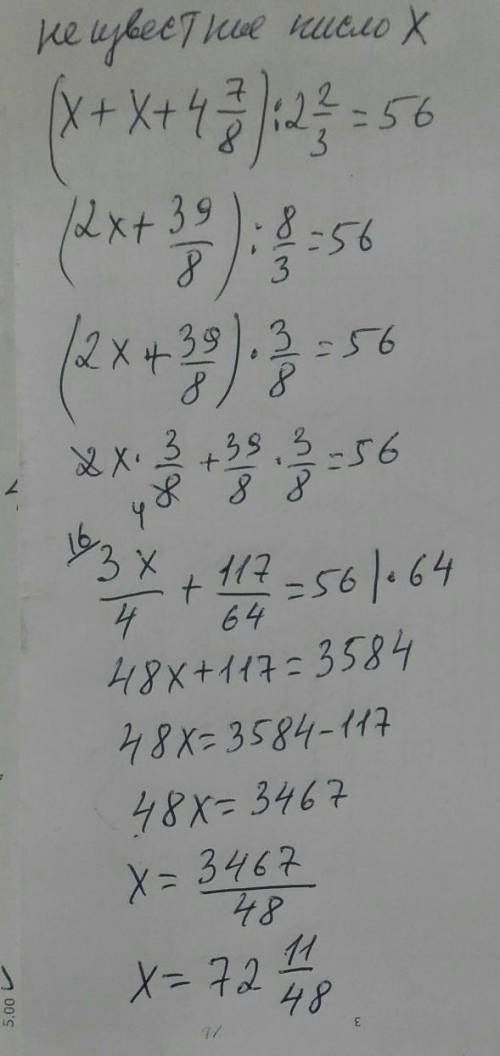 неизвестное число X
(x + x + 4 7/8) : 2 2/3 = 56
(2x + 39/8) : 8/3 = 56
(2x + 39/8) · 3/8 = 56
2x · 3/8 + 39/8 · 3/8 = 56
4
16
3x/4 + 117/64 = 56 | · 64
48x + 117 = 3584
48x = 3584 - 117
48x = 3467
x = 3467/48
x = 72 11/48
5.00
3